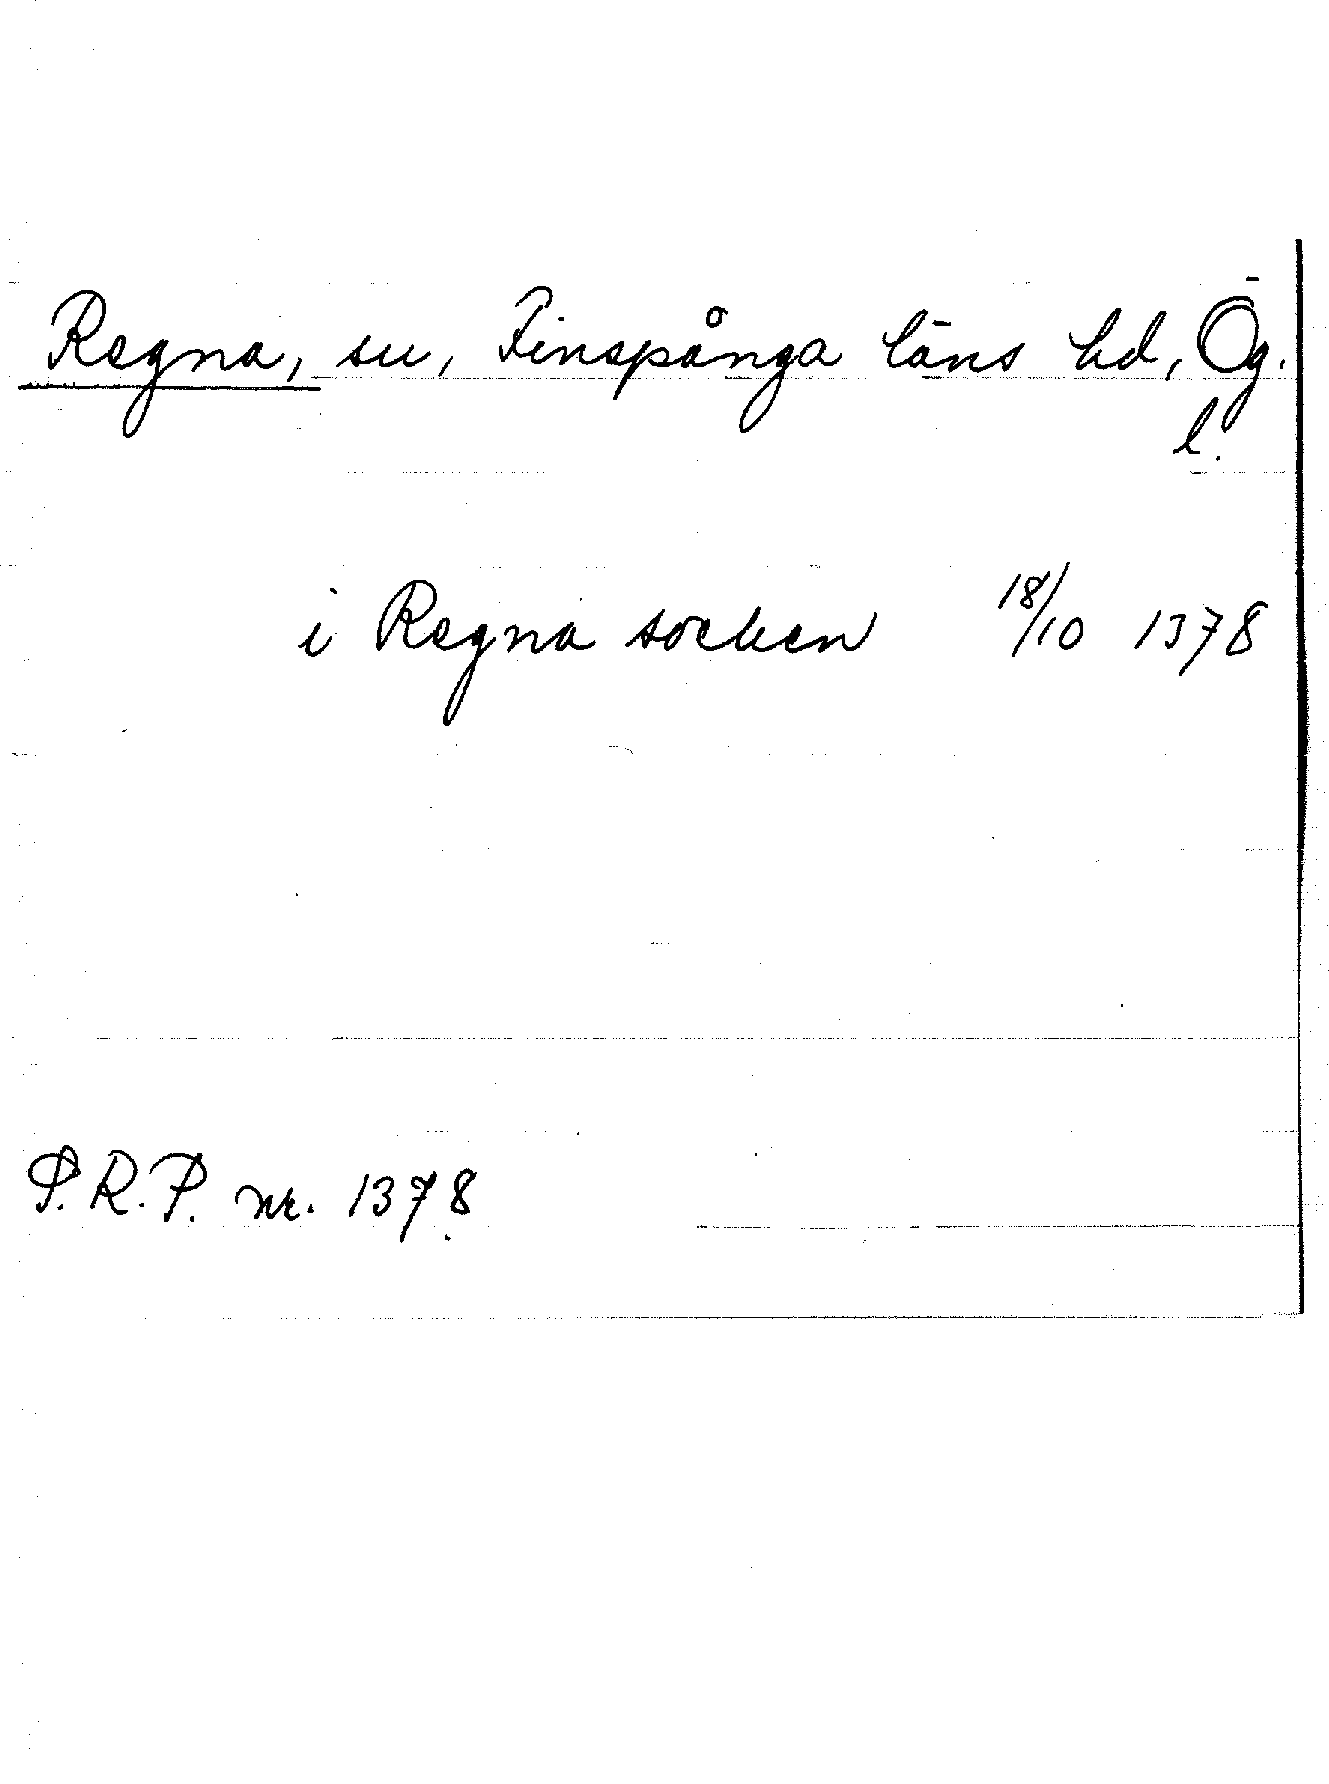 Regna, sn, Finspånga läns hd, Ög.
l.
i Regna socken 18/10 1378
S.R.P. nr. 1378